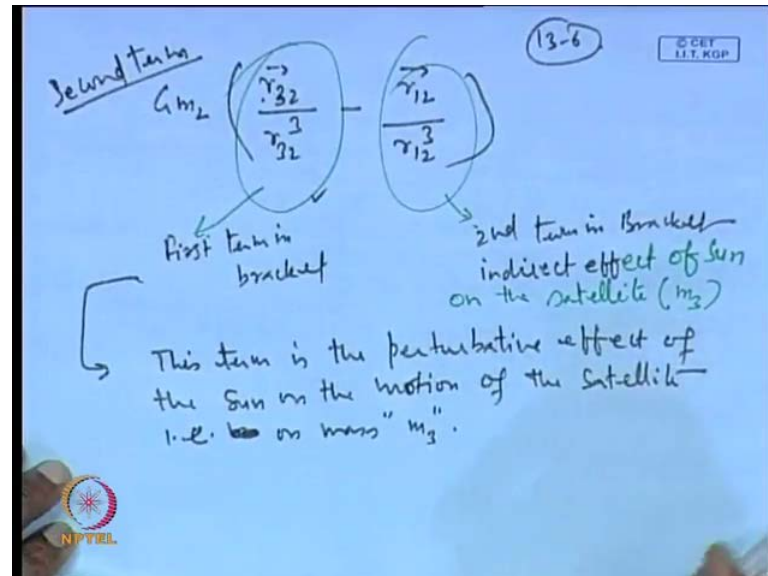 13-6
© CET
I.I.T. KGP
Second term
Gm₂ ( r⃗₃₂ / r₃₂³ − r⃗₁₂ / r₁₂³ )
First term in
bracket
2nd term in Bracket
indirect effect of Sun
on the satellite (m₃)
This term is the perturbative effect of
the Sun on the motion of the satellite
i.e. on mass "m₃".
NPTEL